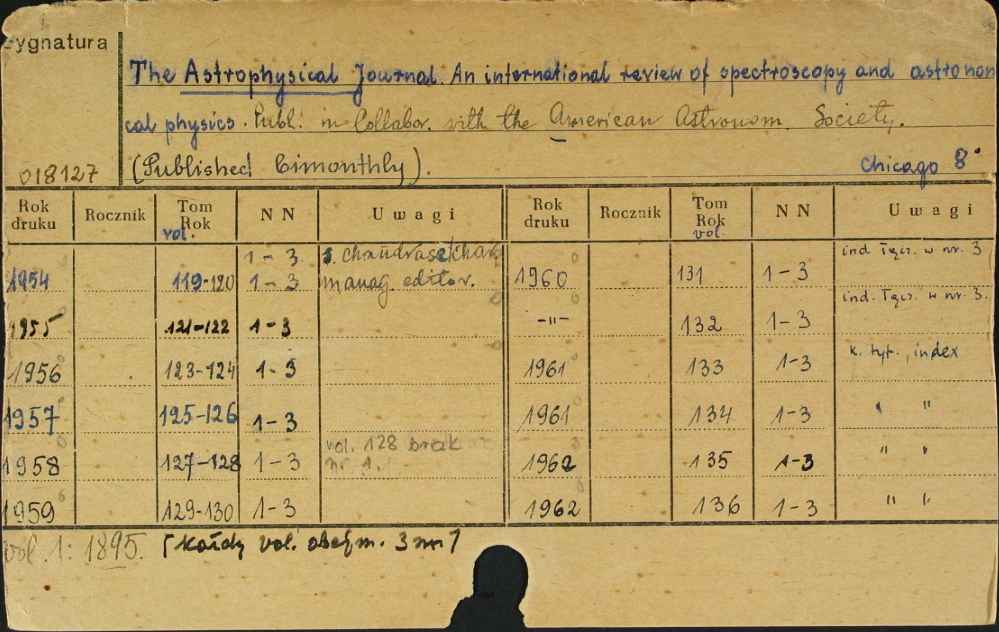 Sygnatura
The Astrophysical Journal. An international review of spectroscopy and astronomi
cal physics. Publ. in Collabor. with the American Astronom. Society.
018127 (Published bimonthly). Chicago 8°
Rok druku Rocznik Tom Rok vol. NN Uwagi Rok druku Rocznik Tom Rok vol. NN Uwagi
1-3 S. Chandrasekhar ind. łącz. w nr. 3
1954 119-120 1-3 manag. editor. 1960 131 1-3
ind. łącz. w nr. 3.
1955 121-122 1-3 -"- 132 1-3
1956 123-124 1-3 1961 133 1-3 k. tyt., index
1957 125-126 1-3 1961 134 1-3 " "
vol. 128 brak
1958 127-128 1-3 nr 1. 1962 135 1-3 " "
1959 129-130 1-3 1962 136 1-3 " "
vol. 1: 1895. [każdy vol. obejm. 3 nr]